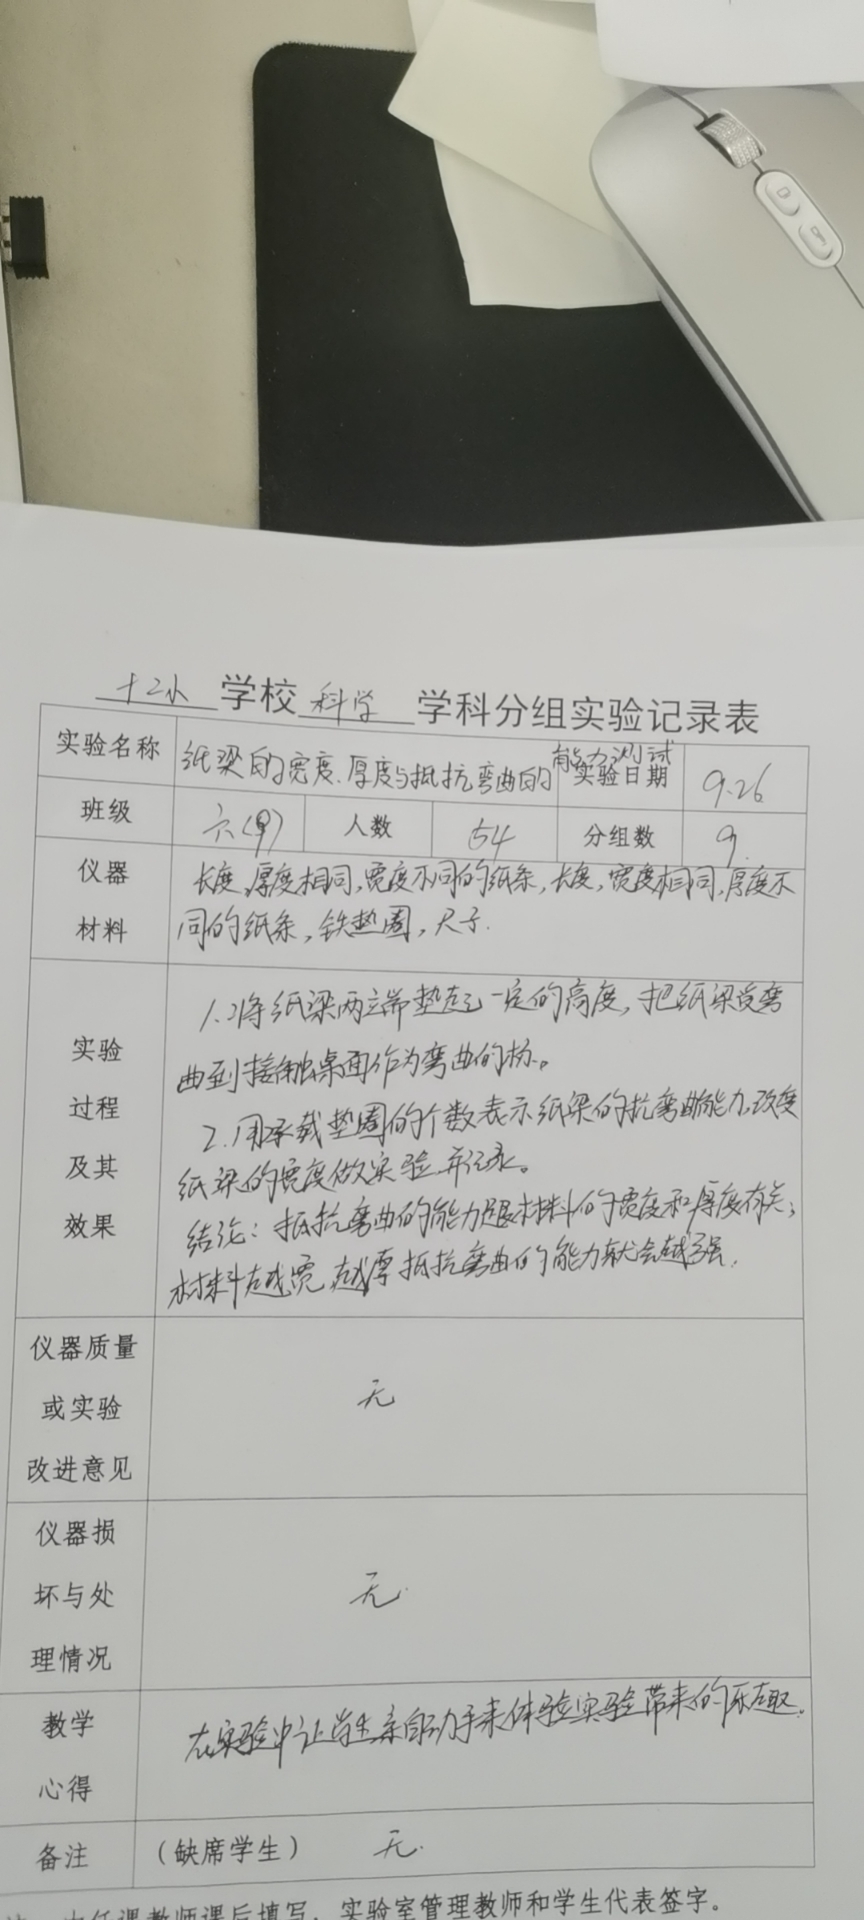 十二小 学校 科学 学科分组实验记录表
实验名称 纸梁的宽度、厚度与抵抗弯曲的能力测试 实验日期 9.26
班级 六(甲) 人数 54 分组数 9.
仪器材料 长度,厚度相同,宽度不同的纸条,长度,宽度相同,厚度不
同的纸条,铁垫圈,尺子.
实验过程及其效果
1.将纸梁两端垫起一定的高度,把纸梁受弯
曲到接触桌面作为弯曲的标。
2.用承载垫圈的个数表示纸梁的抗弯曲能力,改变
纸梁的宽度做实验并记录。
结论:抵抗弯曲的能力跟材料的宽度和厚度有关;
材料越宽、越厚抵抗弯曲的能力就会越强.
仪器质量或实验改进意见 无
仪器损坏与处理情况 无.
教学心得 在实验中让学生亲自动手来体验实验带来的乐趣.
备注 (缺席学生) 无.
任课教师课后填写,实验室管理教师和学生代表签字。